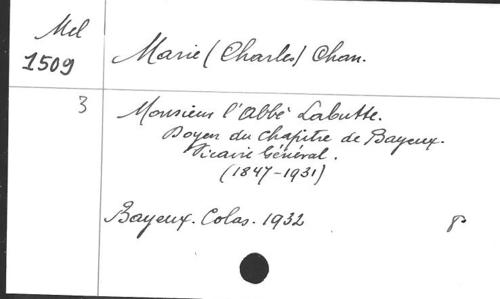 Mel
1509
Marie (Charles) Chan.
3
Monsieur l'Abbé Labutte.
Doyen du Chapitre de Bayeux.
Vicaire Général.
(1847-1931)
Bayeux. Colas. 1932